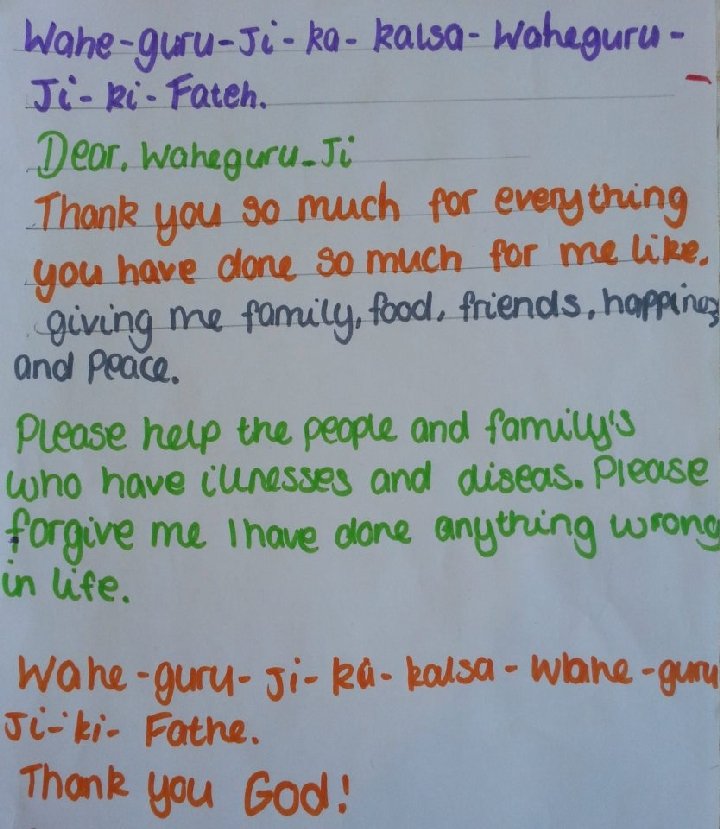 Wahe-guru-Ji-ka-kalsa-Waheguru-
Ji-ki-Fateh.
Dear, Waheguru-Ji
Thank you so much for everything
you have done so much for me like.
giving me family, food, friends, happines
and Peace.
Please help the people and family's
who have illnesses and diseas. Please
forgive me I have done anything wrong
in life.
Wahe-guru-Ji-ka-kalsa-Wahe-guru
Ji-ki-Fathe.
Thank you God!